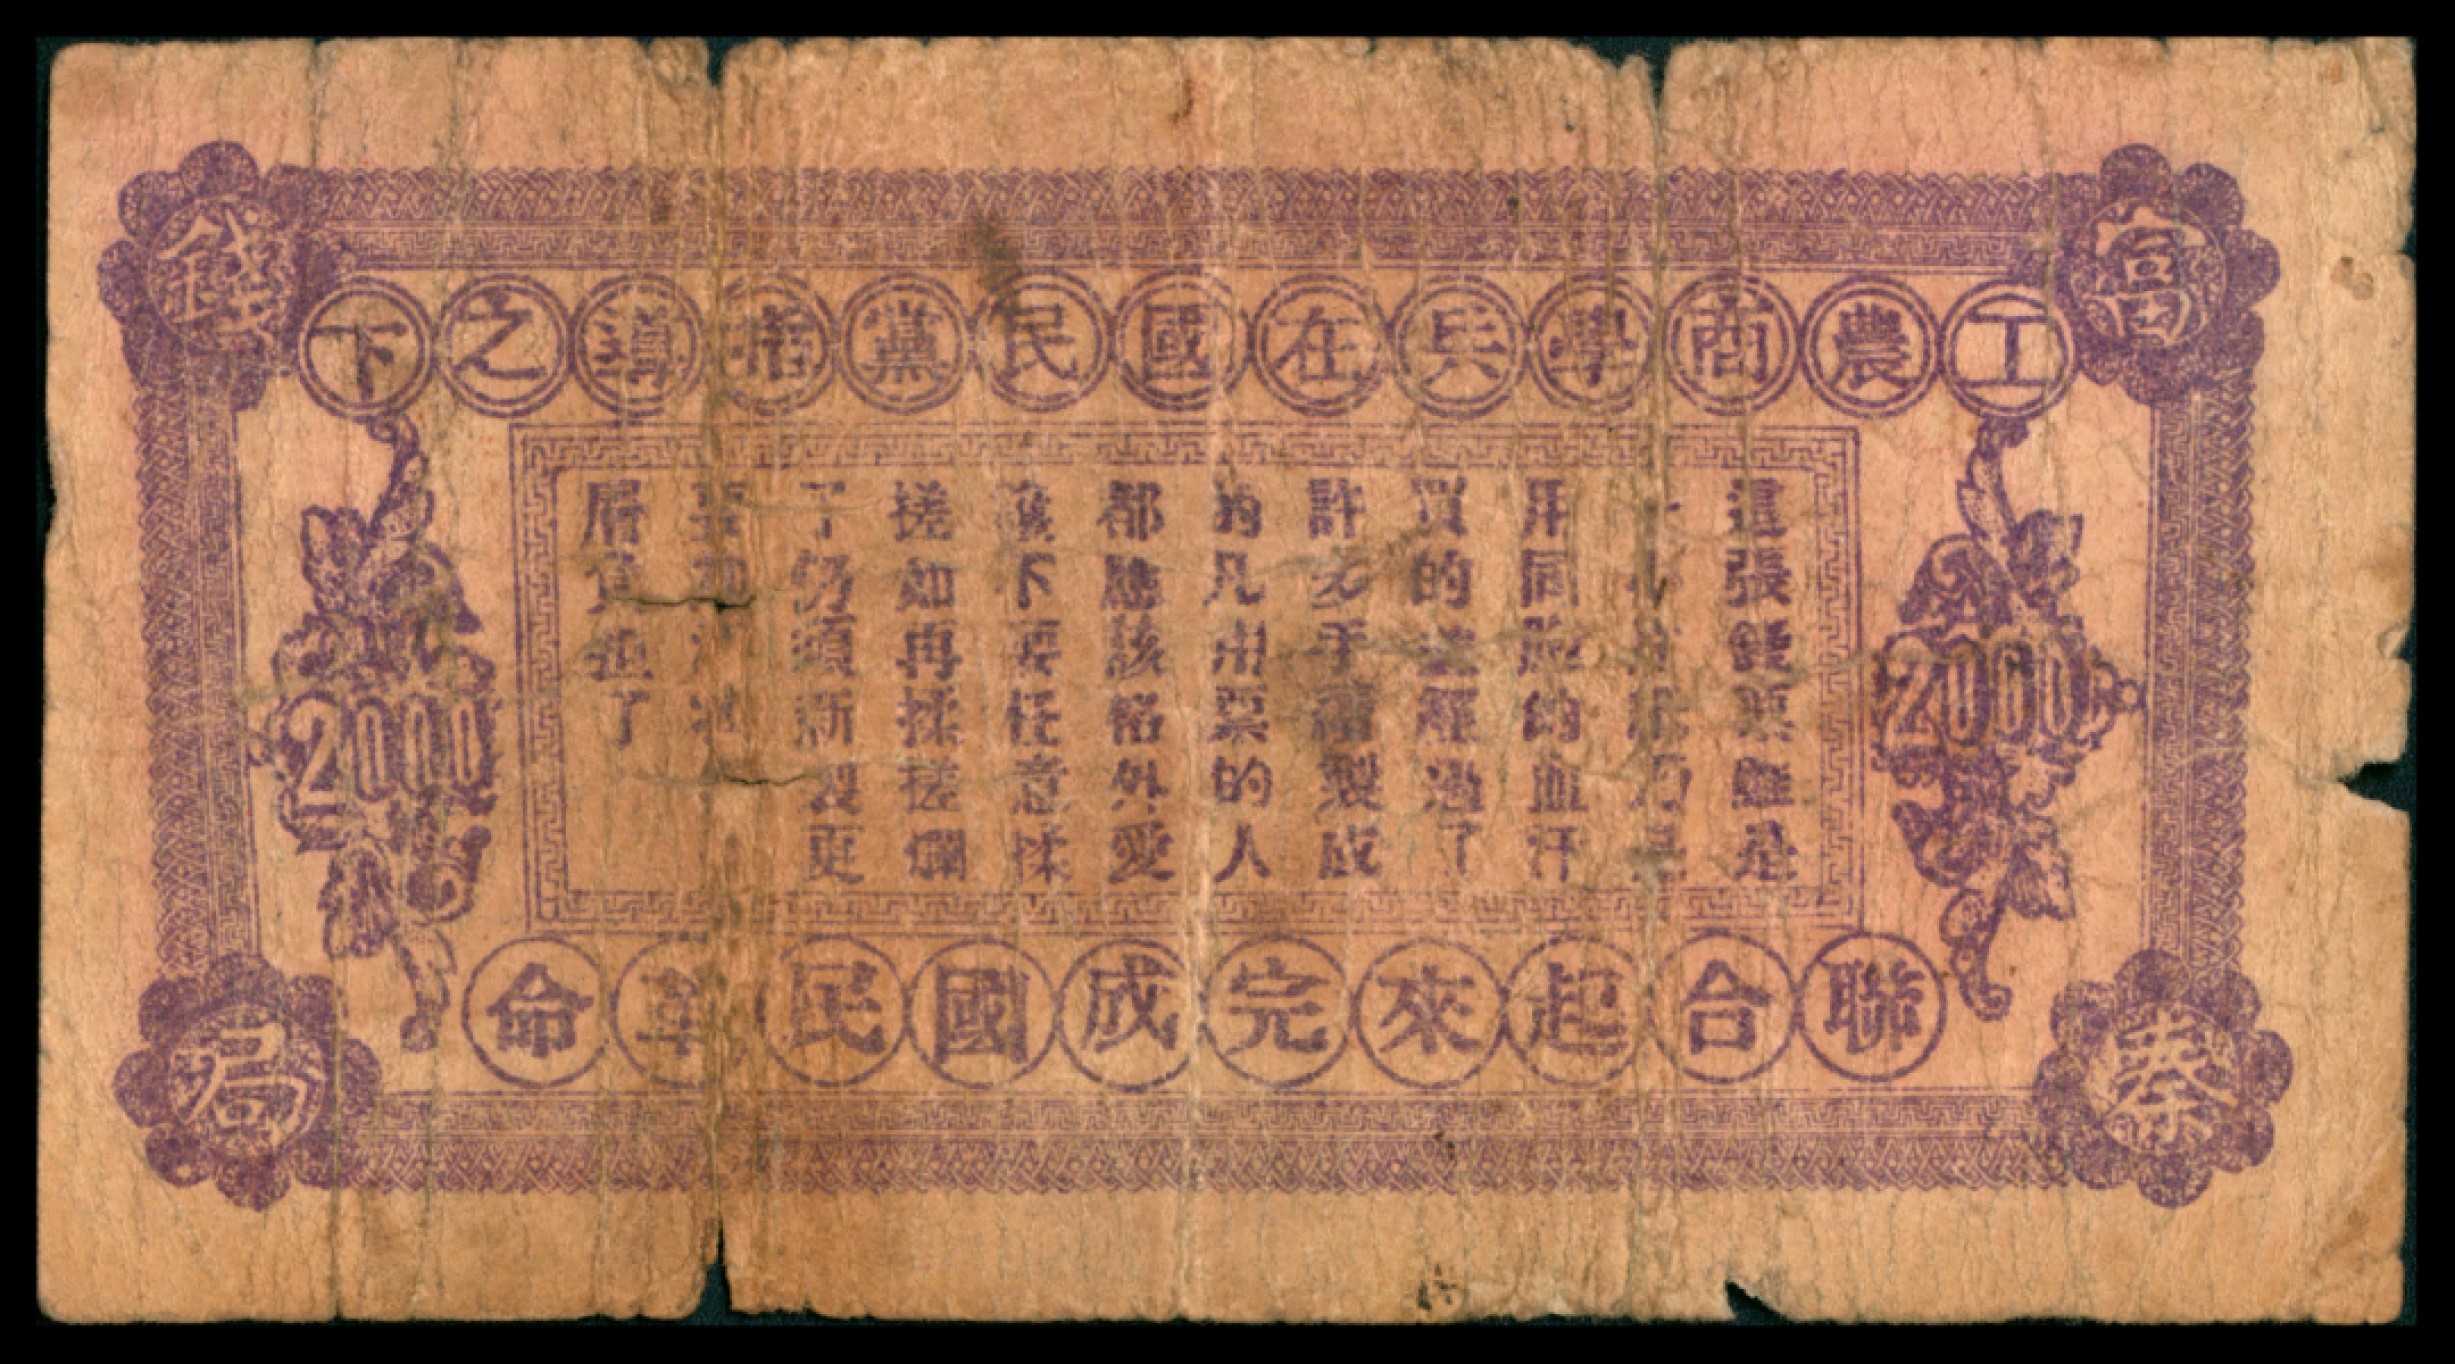 富秦錢局
工農商學兵在國民黨指導之下
這張錢票雖是
用同胞的血汗
買的並經過了
許多手續製成
的凡用票的人
都應該格外愛
護不要任意揉
搓如再揉搓爛
了仍須新製更
要加
層負擔了
2000
2000
聯合起來完成國民革命